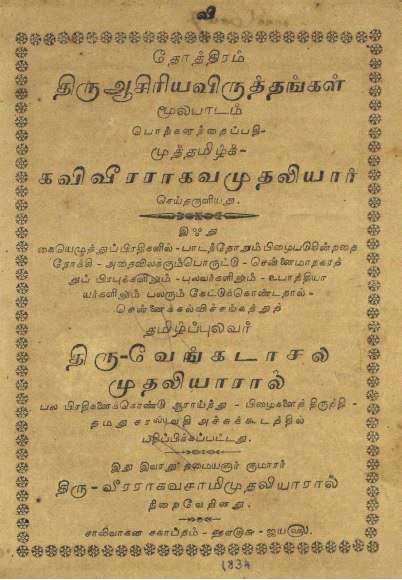 வி
தோத்திரம்
திருஆசிரியவிருத்தங்கள்
மூலபாடம்
பொற்களந்தைப்பதி-
முத்தமிழ்க்-
கவிவீரராகவமுதலியார்
செய்தருளியது.
இஃது
கையெழுத்துப்பிரதிகளில்-பாடந்தோறும்பிழைபடுகின்றதை
நோக்கி-அதைவிலக்கும்பொருட்டு-சென்னைமாநகரத்
துப் பிரபுக்களிலும்-புலவர்களிலும்-உபாத்தியா
யர்களிலும் பலரும் கேட்டுக்கொண்டதால்-
சென்னைக்கல்விச்சங்கத்துத்
தமிழ்ப்புலவர்
திரு-வேங்கடாசல
முதலியாரால்
பல பிரதிகளைக்கொண்டு ஆராய்ந்து-பிழைகளைத் திருத்தி-
தமது சரஸ்வதி அச்சுக்கூடத்தில்
பதிப்பிக்கப்பட்டது.
இது இவரது தமையனார் குமாரர்
திரு-வீரராகவசாமிமுதலியாரால்
நிறைவேறினது.
சாலிவாகன சகாப்தம்-
1834